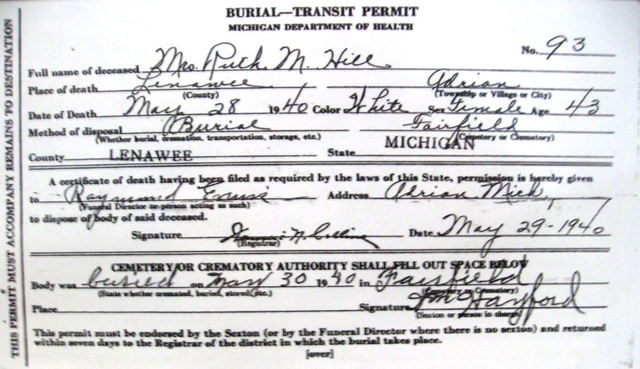 BURIAL—TRANSIT PERMIT
MICHIGAN DEPARTMENT OF HEALTH
No. 93
Full name of deceased Mrs. Ruth M. Hill
Place of death Lenawee Adrian
(County) (Township or Village or City)
Date of Death May 28 1940 Color White Sex Female Age 43
Method of disposal Burial Fairfield
(Whether burial, cremation, transportation, storage, etc.) (Cemetery or Crematory)
County LENAWEE State MICHIGAN
A certificate of death having been filed as required by the laws of this State, permission is hereby given
to Raymond Evans Address Adrian Mich,
(Funeral Director or person acting as such)
to dispose of body of said deceased.
Signature N. Collins Date May 29-1940
(Registrar)
CEMETERY OR CREMATORY AUTHORITY SHALL FILL OUT SPACE BELOW
Body was buried on May 30 1940 in Fairfield
(State whether cremated, buried, stored, etc.) (Cemetery or Crematory)
Place Signature Hayford
(Sexton or person in charge)
This permit must be endorsed by the Sexton (or by the Funeral Director where there is no sexton) and returned
within seven days to the Registrar of the district in which the burial takes place.
[over]
THIS PERMIT MUST ACCOMPANY REMAINS TO DESTINATION